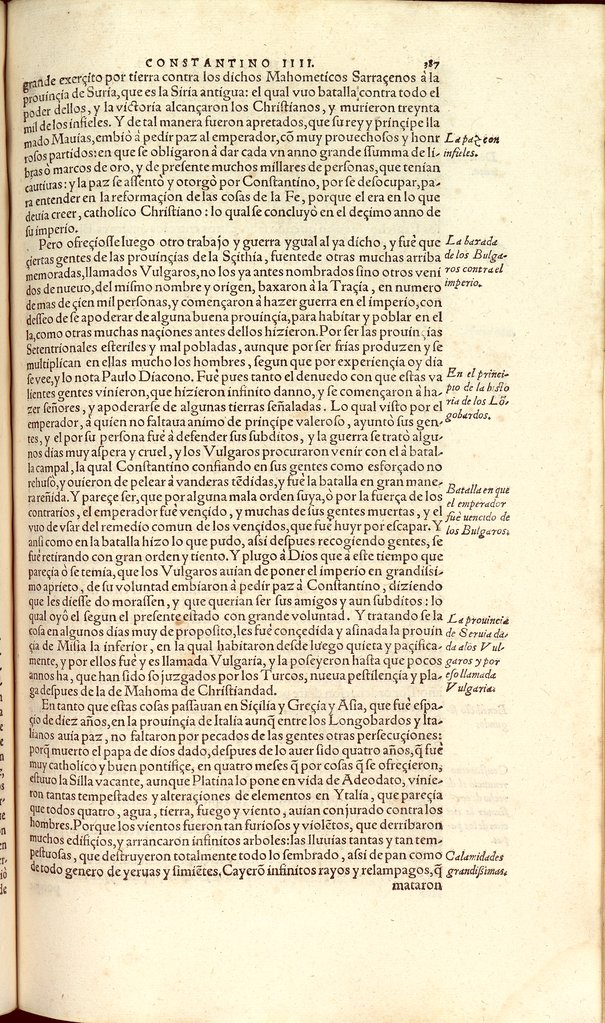 CONSTANTINO IIII. 387
grande exerçito por tierra contra los dichos Mahometicos Sarraçenos à la
prouinçia de Suria, que es la Siria antigua: el qual vuo batalla contra todo el
poder dellos, y la victoria alcançaron los Christianos, y murieron treynta
mil de los infieles. Y de tal manera fueron apretados, que su rey y prinçipe lla
mado Mauias, embiò à pedir paz al emperador, cõ muy prouechosos y honr
rosos partidos: en que se obligaron à dar cada vn anno grande summa de li-
bras ò marcos de oro, y de presente muchos millares de personas, que tenian
cautiuas: y la paz se assentò y otorgò por Constantino, por se desocupar, pa-
ra entender en la reformaçion de las cosas de la Fe, porque el era en lo que
deuia creer, catholico Christiano: lo qual se concluyò en el deçimo anno de
su imperio.
La paz con
infieles.
Pero ofreçiosse luego otro trabajo y guerra ygual al ya dicho, y fuè que
çiertas gentes de las prouinçias de la Sçithia, fuente de otras muchas arriba
memoradas, llamados Vulgaros, no los ya antes nombrados sino otros veni
dos de nueuo, del mismo nombre y origen, baxaron à la Traçia, en numero
de mas de çien mil personas, y començaron à hazer guerra en el imperio, con
desseo de se apoderar de alguna buena prouinçia, para habitar y poblar en el
la, como otras muchas naçiones antes dellos hizieron. Por ser las prouinçias
Setentrionales esteriles y mal pobladas, aunque por ser frias produzen y se
multiplican en ellas mucho los hombres, segun que por experiençia oy dia
se vee, y lo nota Paulo Diacono. Fuè pues tanto el denuedo con que estas va
lientes gentes vinieron, que hizieron infinito danno, y se començaron à ha-
zer señores, y apoderarse de algunas tierras señaladas. Lo qual visto por el
emperador, à quien no faltaua animo de prinçipe valeroso, ayuntò sus gen-
tes, y el por su persona fuè à defender sus subditos, y la guerra se tratò algu-
nos dias muy aspera y cruel, y los Vulgaros procuraron venir con el à batal-
la campal, la qual Constantino confiando en sus gentes como esforçado no
rehusò, y ouieron de pelear à vanderas tẽdidas, y fuè la batalla en gran mane-
ra reñida. Y pareçe ser, que por alguna mala orden suya, ò por la fuerça de los
contrarios, el emperador fuè vençido, y muchas de sus gentes muertas, y el
vuo de vsar del remedio comun de los vençidos, que fuè huyr por escapar. Y
ansi como en la batalla hizo lo que pudo, assi despues recogiendo gentes, se
fuè retirando con gran orden y tiento. Y plugo à Dios que à este tiempo que
pareçia ò se temia, que los Vulgaros auian de poner el imperio en grandissi-
mo aprieto, de su voluntad embiaron à pedir paz à Constantino, diziendo
que les diesse do morassen, y que querian ser sus amigos y aun subditos: lo
qual oyò el segun el presente estado con grande voluntad. Y tratando se la
cosa en algunos dias muy de proposito, les fuè conçedida y asinada la prouin
çia de Misia la inferior, en la qual habitaron desde luego quieta y paçifica-
mente, y por ellos fuè y es llamada Vulgaria, y la poseyeron hasta que pocos
annos ha, que han sido sojuzgados por los Turcos, nueua pestilençia y pla-
ga despues de la de Mahoma de Christiandad.
La baxada
de los Bulga-
ros contra el
imperio.
En el princi-
pio de la histo
ria de los Lõ-
gobardos.
Batalla en que
el emperador
fuè uencido de
los Bulgaros.
La prouincia
de Seruia da-
da a los Vul-
garos y por
eso llamada
Vulgaria.
En tanto que estas cosas passauan en Siçilia y Greçia y Asia, que fuè espa-
çio de diez años, en la prouinçia de Italia aunq̃ entre los Longobardos y Ita-
lianos auia paz, no faltaron por pecados de las gentes otras persecuçiones:
porq̃ muerto el papa de dios dado, despues de lo auer sido quatro años, q̃ fuè
muy catholico y buen pontifiçe, en quatro meses q̃ por cosas q̃ se ofreçieron,
estuuo la Silla vacante, aunque Platina lo pone en vida de Adeodato, vinie-
ron tantas tempestades y alteraçiones de elementos en Ytalia, que pareçia
que todos quatro, agua, tierra, fuego y viento, auian conjurado contra los
hombres. Porque los vientos fueron tan furiosos y violẽtos, que derribaron
muchos edifiçios, y arrancaron infinitos arboles: las lluuias tantas y tan tem-
pestuosas, que destruyeron totalmente todo lo sembrado, assi de pan como
de todo genero de yeruas y simiẽtes. Cayerõ infinitos rayos y relampagos, q̃
mataron
Calamidades
grandißimas.